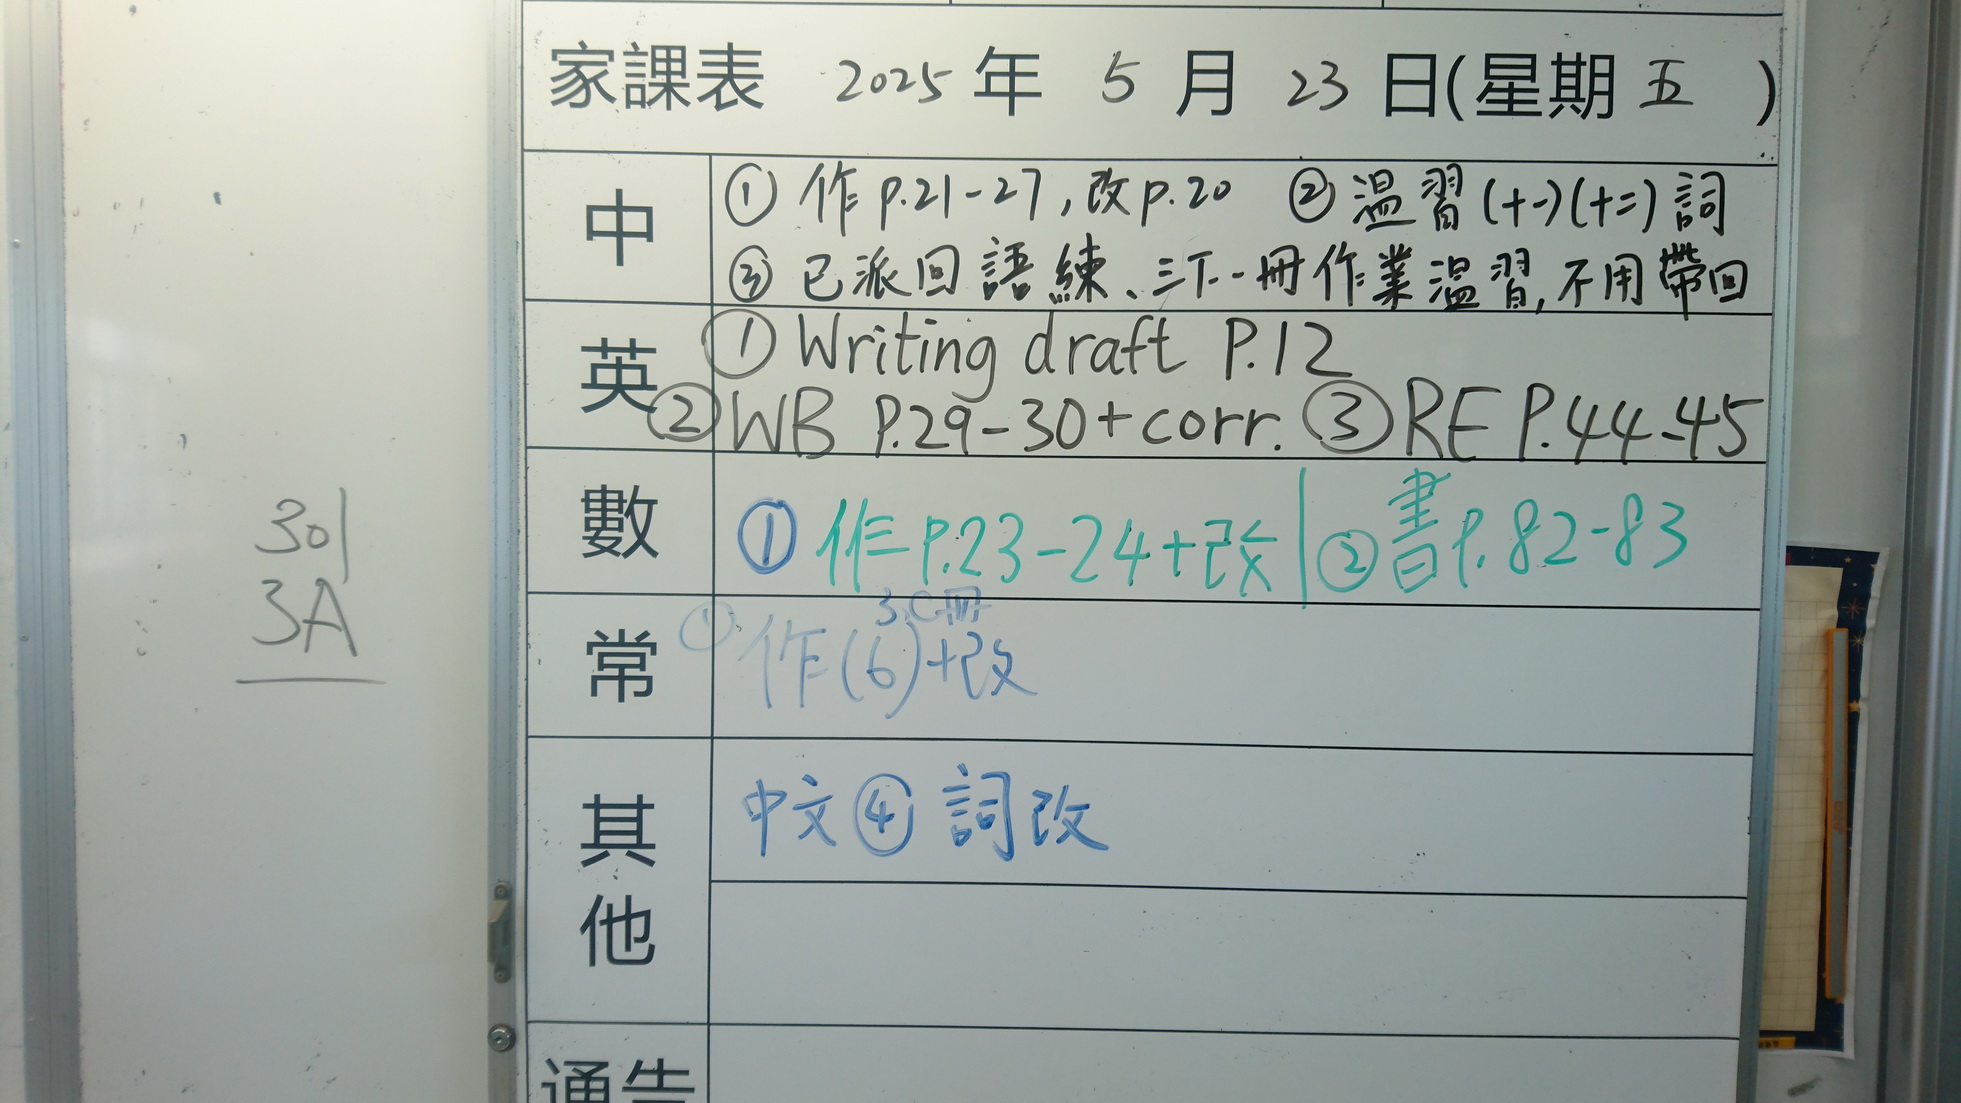 家課表 2025 年 5 月 23 日(星期 五 )
中
① 作 p.21-27, 改 p.20 ② 溫習 (十一)(十二) 詞
③ 已派回語練、三下一冊作業溫習, 不用帶回
英
① Writing draft P.12
② WB P.29-30+corr. ③ RE P.44-45
數
① 作 P.23-24+改 | ② 書 P.82-83
常
3C冊
① 作(6)+改
其他
中文 ④ 詞改
通告
301
3A